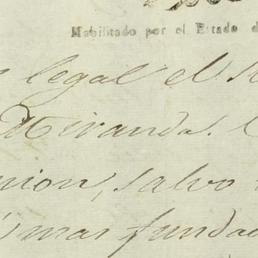 Habilitado por el Estado d
legal el S
Miranda.
nion, salvo
mas funda